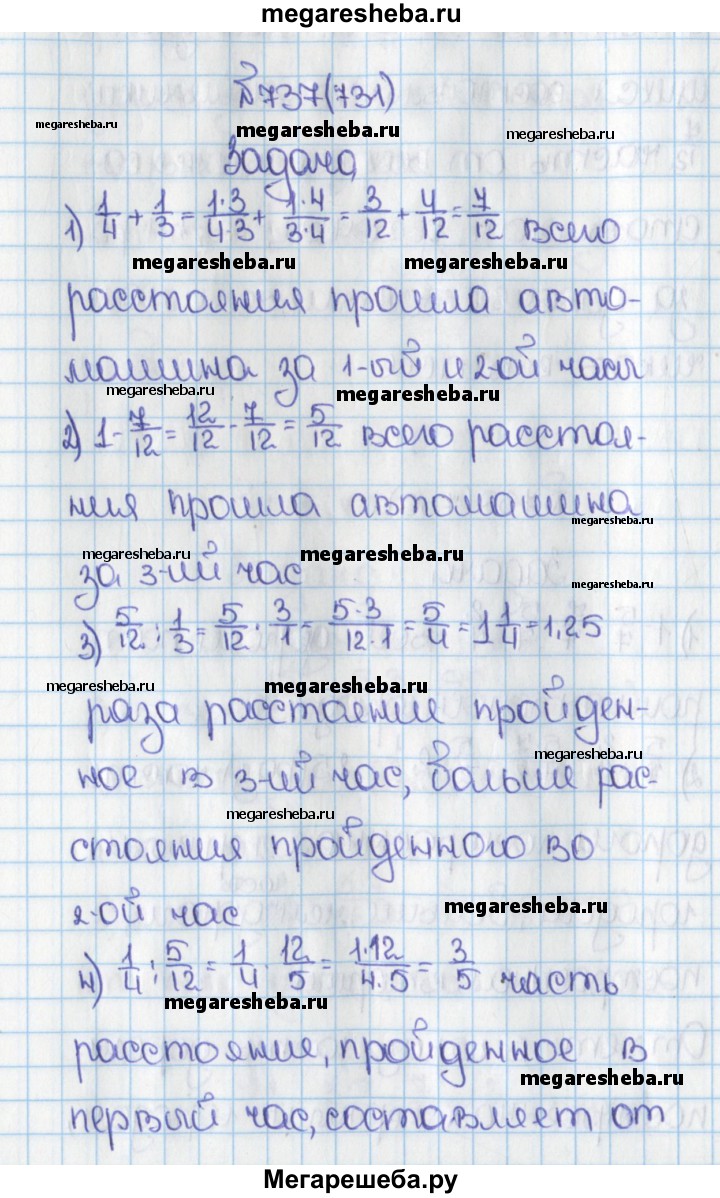 megaresheba.ru
№737(731)
megaresheba.ru megaresheba.ru megaresheba.ru
Задача
1) 1/4 + 1/3 = 1·3/4·3 + 1·4/3·4 = 3/12 + 4/12 = 7/12 всего
megaresheba.ru megaresheba.ru
расстояния прошла авто-
машина за 1-ый и 2-ой часы
megaresheba.ru megaresheba.ru
2) 1 - 7/12 = 12/12 - 7/12 = 5/12 всего расстоя-
ния прошла автомашина
megaresheba.ru
megaresheba.ru megaresheba.ru
за 3-ий час
megaresheba.ru
3) 5/12 : 1/3 = 5/12 · 3/1 = 5·3/12·1 = 5/4 = 1 1/4 = 1,25
megaresheba.ru megaresheba.ru
раза расстояние пройден-
megaresheba.ru
ное в 3-ий час, больше рас-
megaresheba.ru
стояния пройденного во
2-ой час
megaresheba.ru
4) 1/4 : 5/12 = 1/4 · 12/5 = 1·12/4·5 = 3/5 часть
megaresheba.ru
расстояние, пройденное в
megaresheba.ru
первый час, составляет от
Мегарешеба.ру